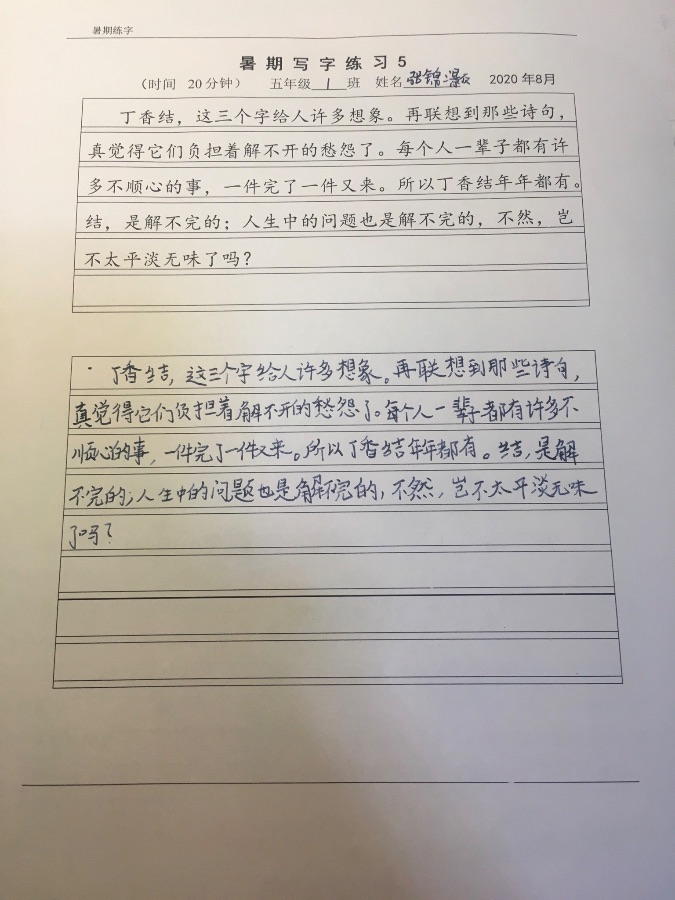 暑期练字
暑期写字练习5
（时间 20分钟） 五年级 1 班 姓名 张锦灏 2020年8月
丁香结，这三个字给人许多想象。再联想到那些诗句，
真觉得它们负担着解不开的愁怨了。每个人一辈子都有许
多不顺心的事，一件完了一件又来。所以丁香结年年都有。
结，是解不完的；人生中的问题也是解不完的，不然，岂
不太平淡无味了吗？
丁香结，这三个字给人许多想象。再联想到那些诗句，
真觉得它们负担着解不开的愁怨了。每个人一辈子都有许多不
顺心的事，一件完了一件又来。所以丁香结年年都有。结，是解
不完的；人生中的问题也是解不完的，不然，岂不太平淡无味
了吗？